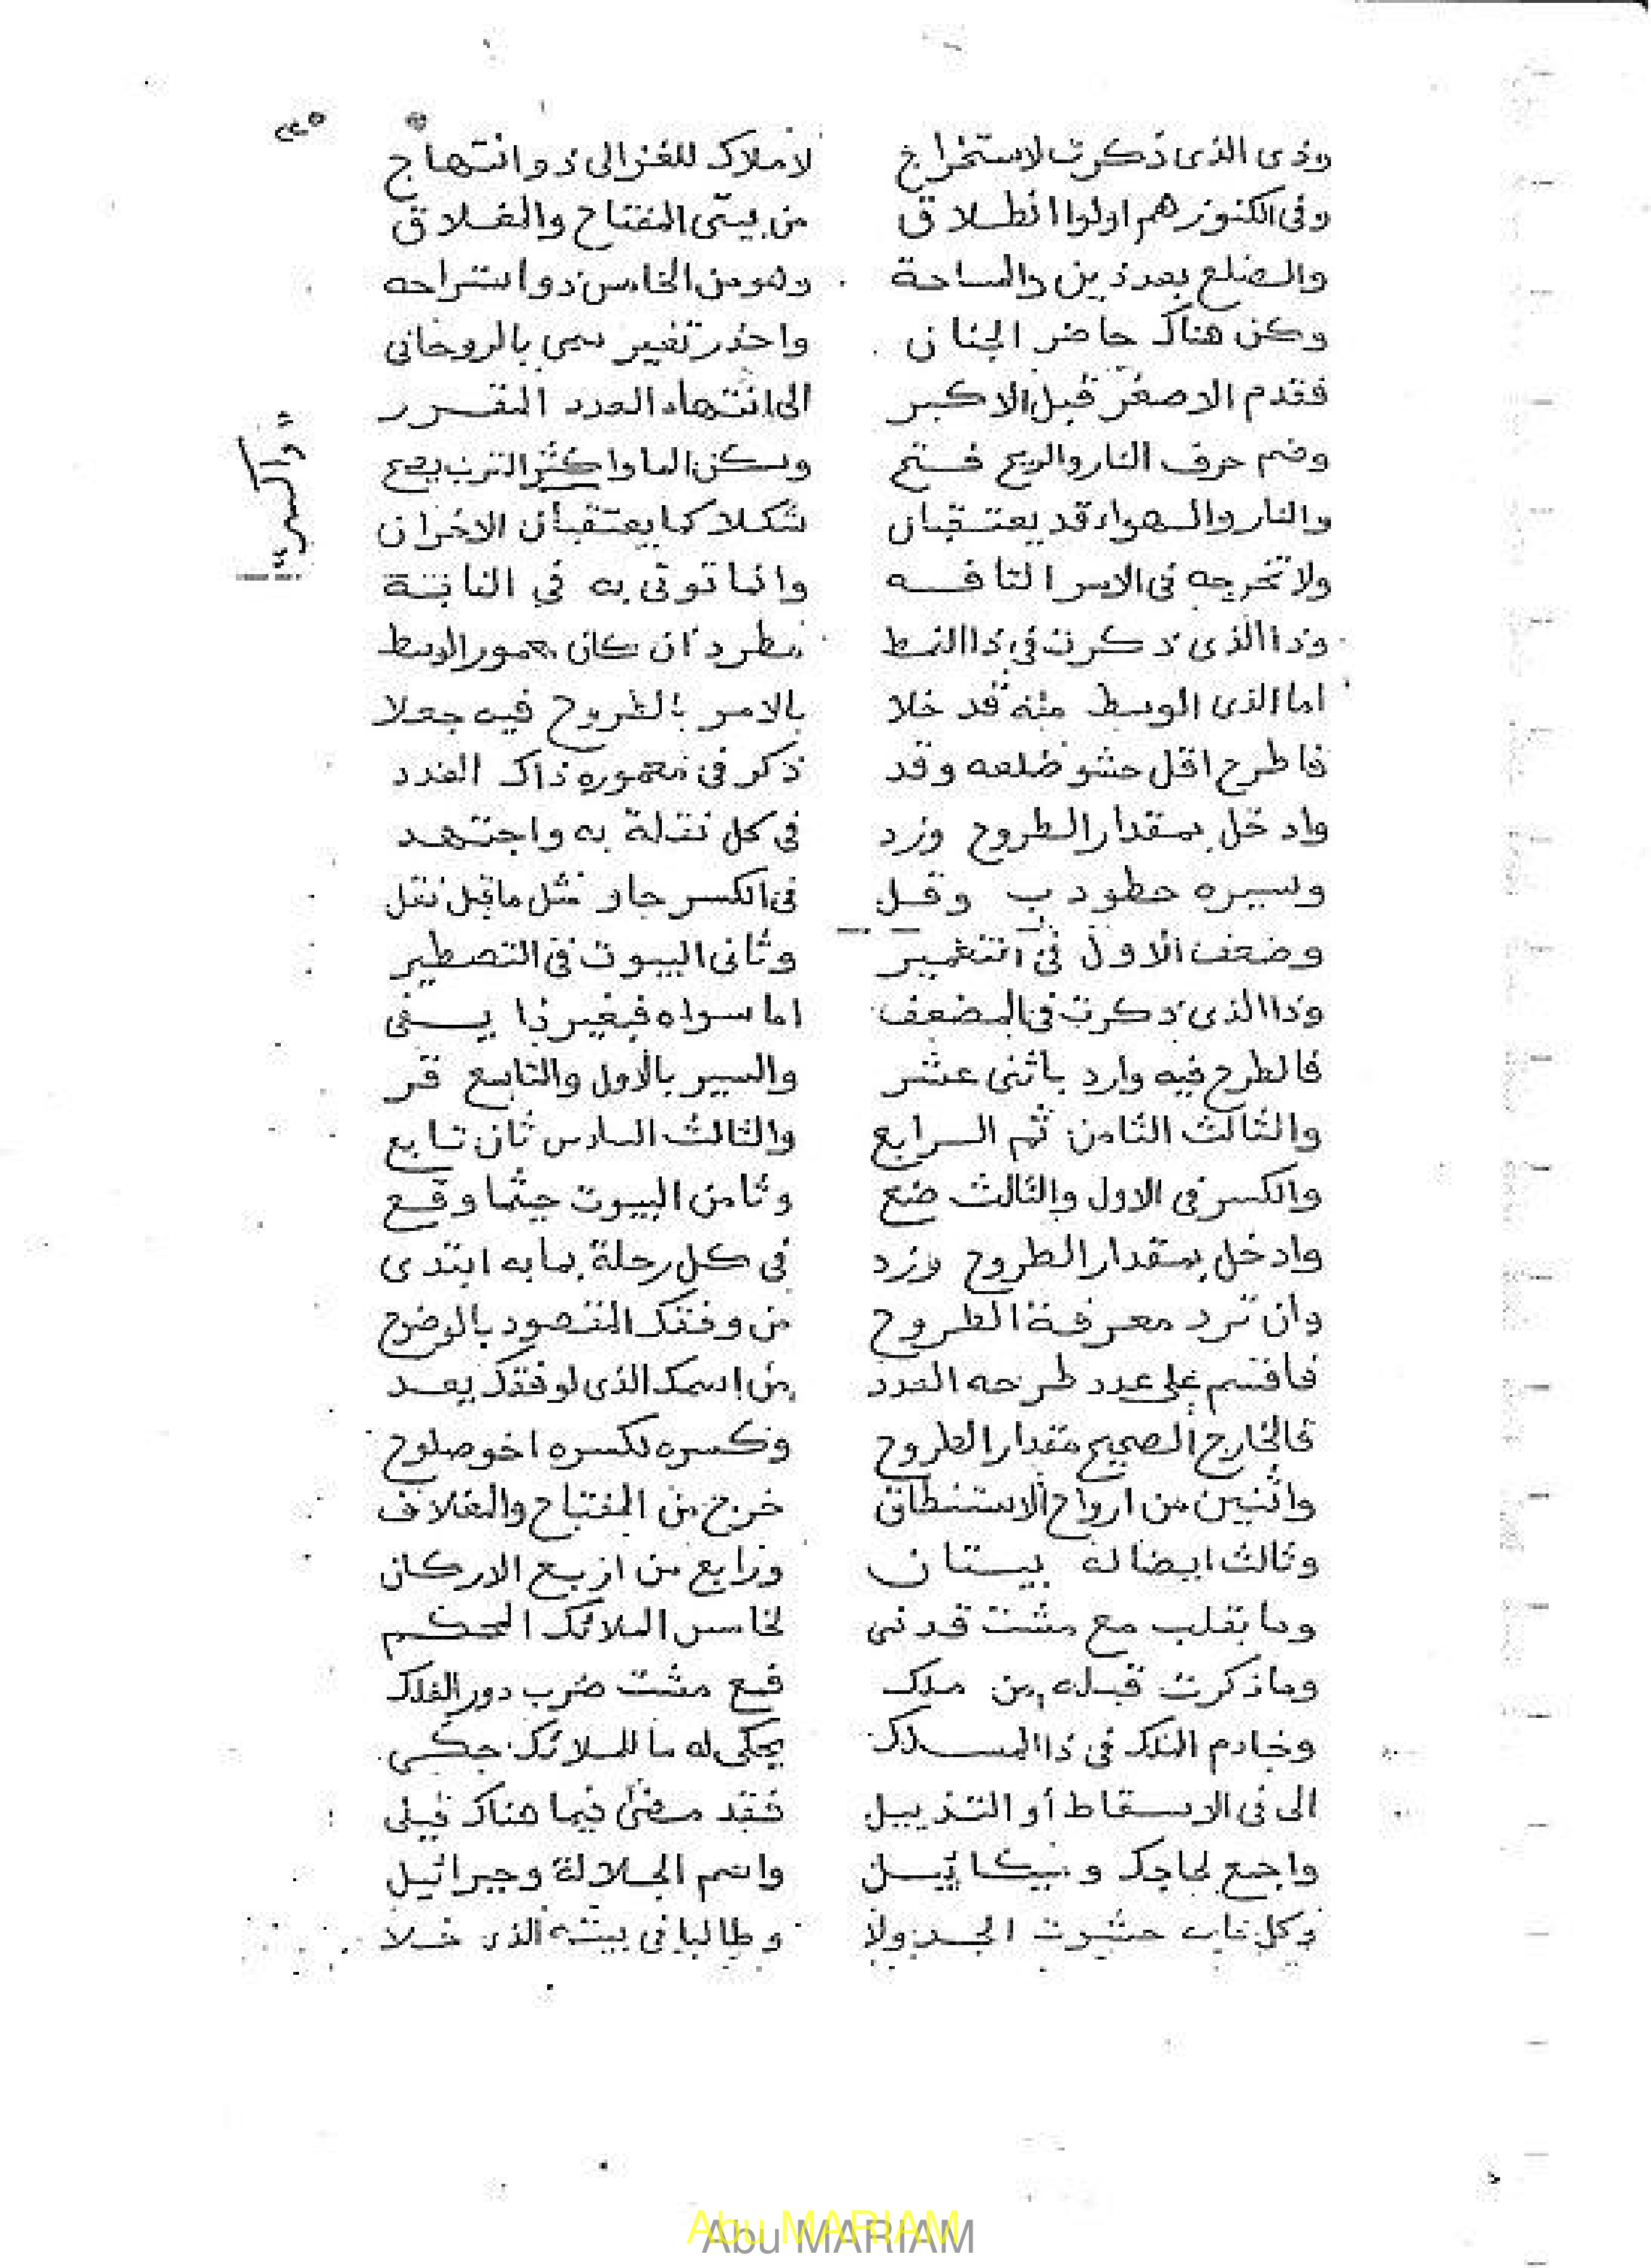 وذى الذى ذكرت لاستخراج لاملاك للغزالى ذو انتهاج
وفى الكنوز هم اولوا انطلاق من بيتى المفتاح والمغلاق
والضلع بعد ذين والمساحة وهو من الخامس ذو استراحه
وكن هناك حاضر الجنان واحذر تغيير سمى بالروحانى
فقدم الاصغر قبل الاكبر الى انتهاء العدد المقرر
وضم حرف النار والريح فتح وسكن الما واكثر الترب يصح
والنار والهواء قد يعتقبان شكلا كما يعتقبان الاخران
"واكسر"
ولا تخرجه فى الاسر التافه وانما توتى به في
وذا الذى ذكرت في ذا النمط مطرد ان كان معمور الوسط
اما الذى الوسط منه قد خلا بالامر بالطروح فيه جعلا
فاطرح اقل حشو ضلعه وقد ذكر فى معموره ذاك العدد
وادخل بمقدار الطروح وزد فى كل نقلة به واجتهد
وسيره حطود ب وقل فى الكسر جاز مثل ما قبل نقل
وضعف الاول فى وثانى البيوت فى التصطير
وذا الذى ذكرت فى المضعف اما سواه فبغير ذا يفى
فالطرح فيه وارد باثنى عشر والسير بالاول والتاسع قر
والثالث الثامن ثم الرابع والثالث السادس ثان تابع
والكسر فى الاول والثالث ضع وثامن البيوت حيثما وقع
وادخل بمقدار الطروح وزد فى كل رحلة بما به ابتدى
وان ترد معرفة الطروح من وفقك المقصود بالوضوح
فاقسم على عدد طرحه العدد من اسمك الذى لوفقك يعد
فالخارج الصحيح مقدار الطروح وكسره لكسره اخو صلوح
واثنين من ارواح الاستنطاق خرج من المفتاح والمغلاق
وثالث ايضا له بيتان ورابع من اربع الاركان
وما بقلب مع مشت قد نمى لخامس الملائك المحكم
وما ذكرت قبله من ملك فمع مشت ضرب دور الفلك
وخادم الملك فى ذا المسلك يحكى له ما للملائك حكى
الى فى الاسقاط أو التذييل فقد مضى فيما هناك قيلى
واجمع لحاجك وميكائيل واسم الجلالة وجبرائيل
وكل باب حشرت الجدولا وطالبا فى بيته الذى خلا
Abu MARIAM